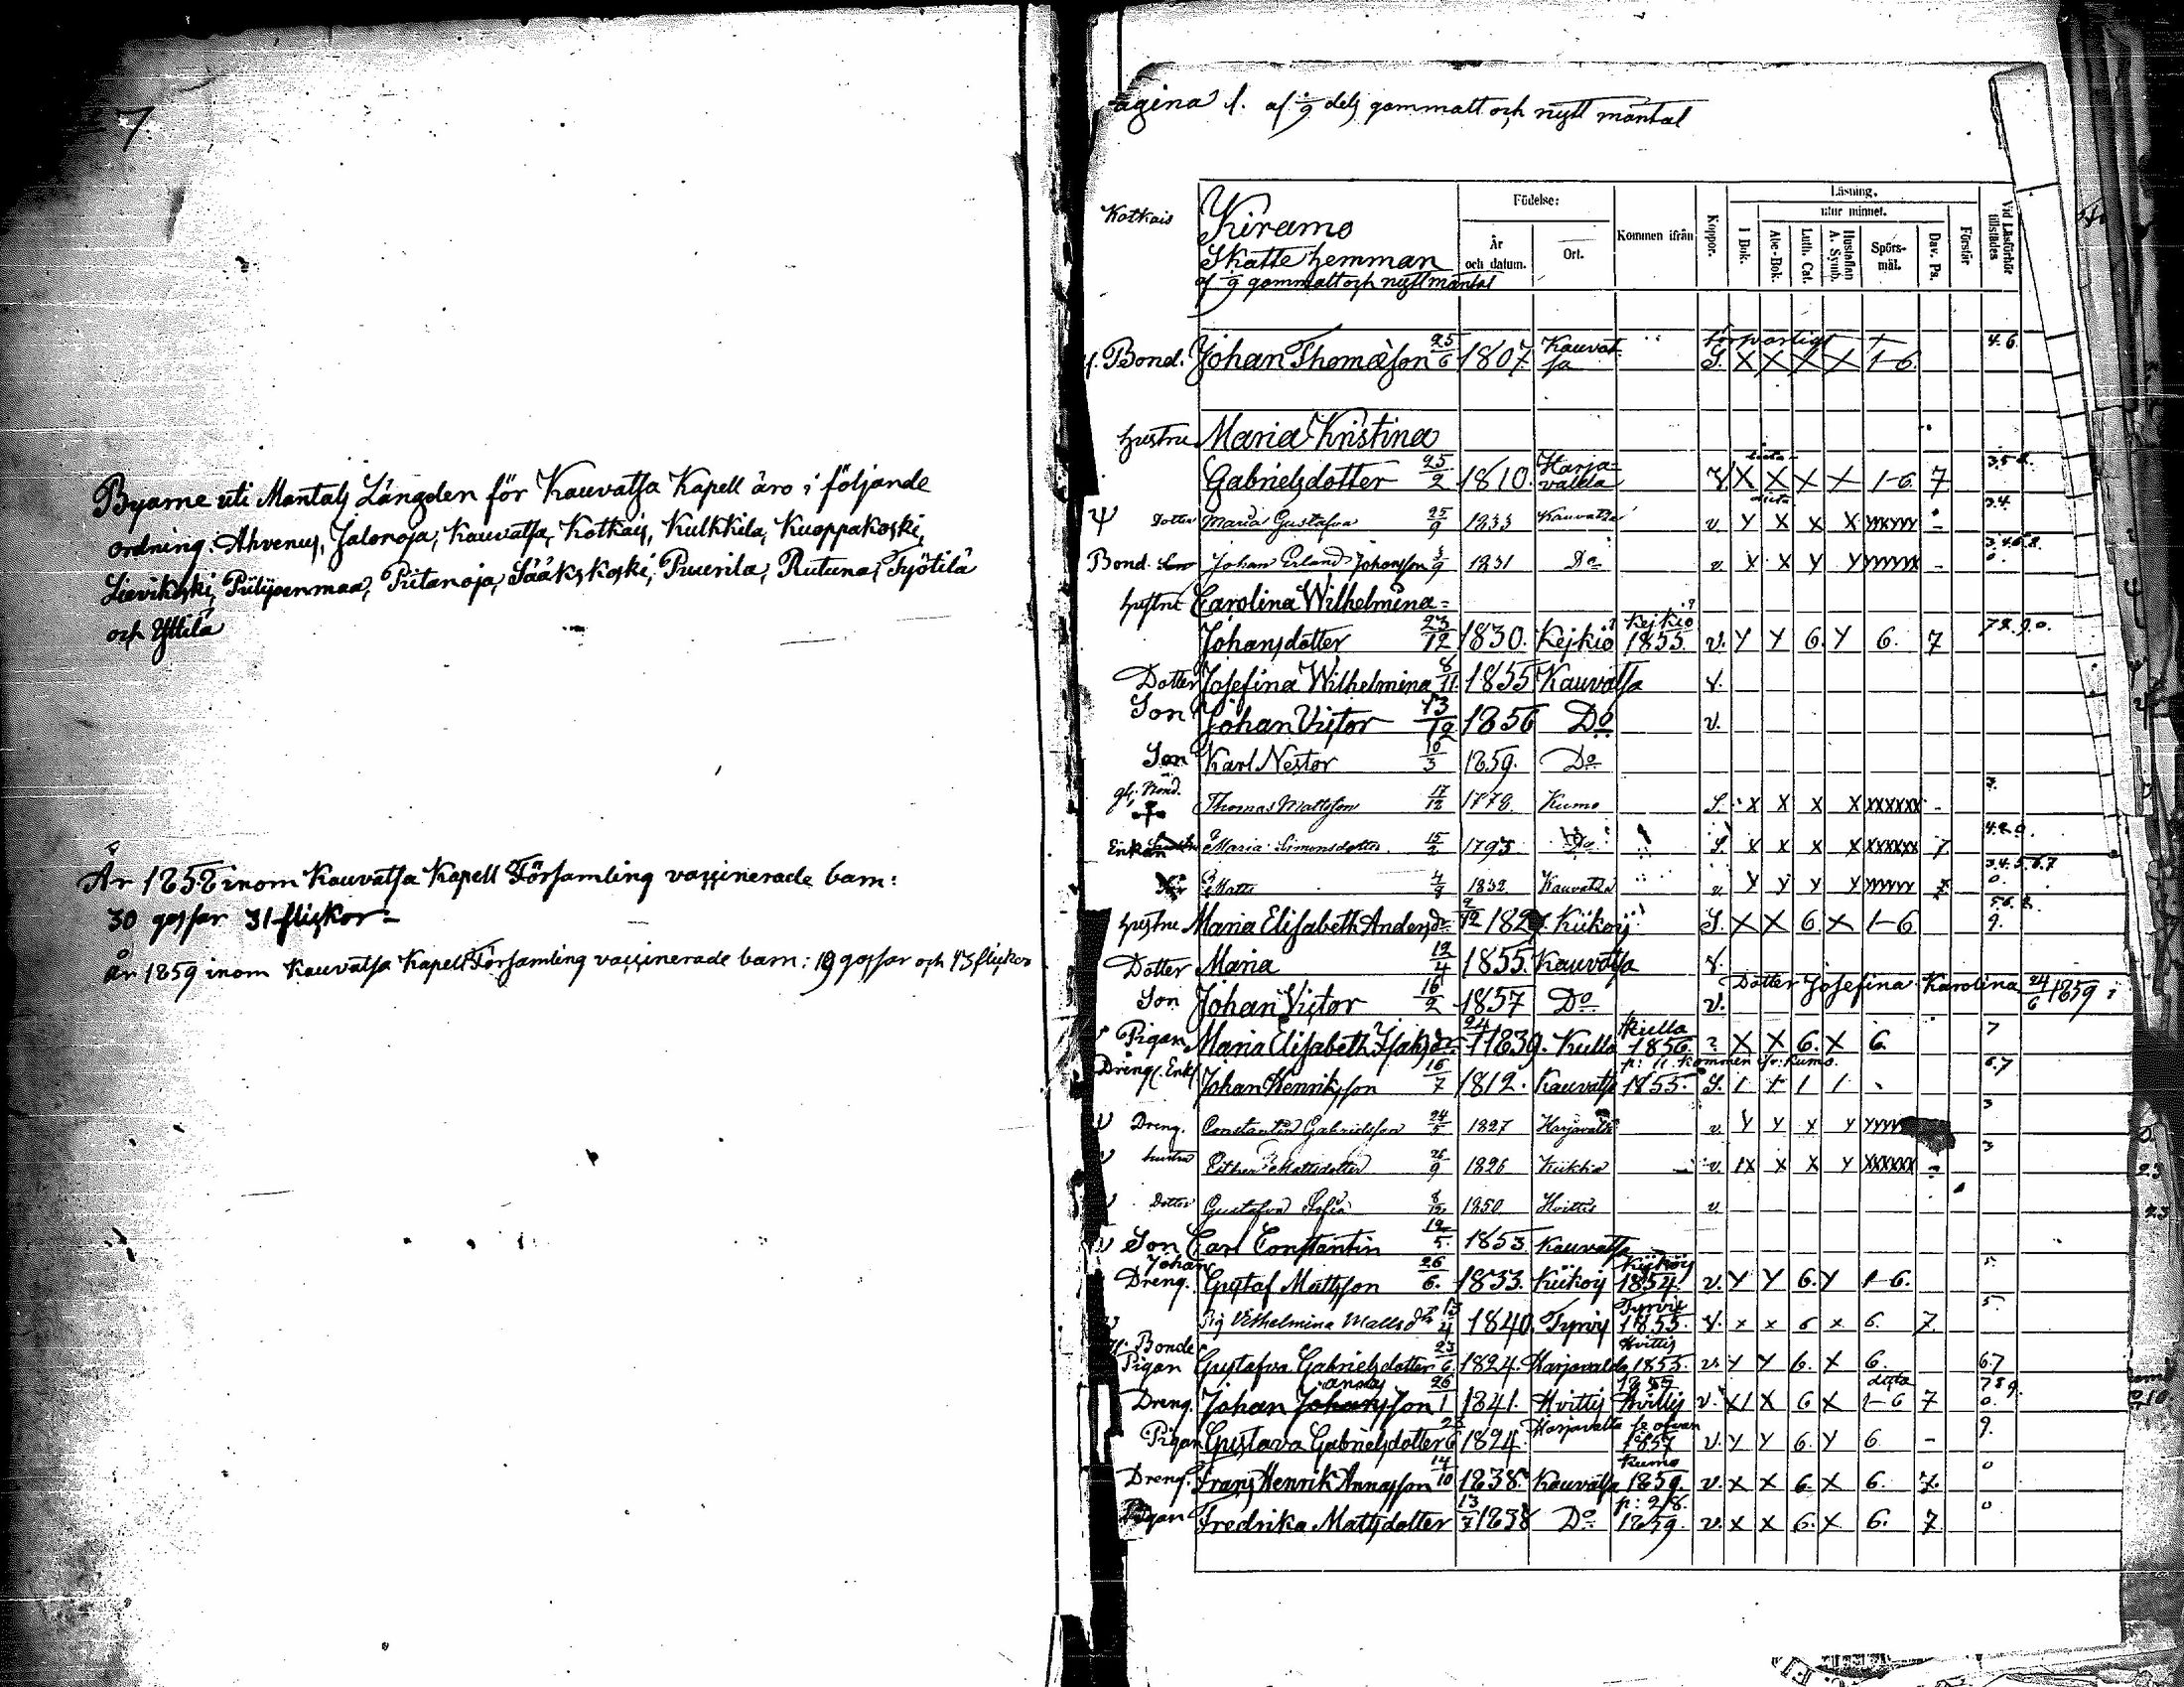 7
Byarne uti Mantals Längden för Kauvatsa Kapell äro i följande
ordning: Ahvenus, Jalonoja, Kauvatsa, Kotkais, Kulkkila, Kuoppakoski,
Lievikoski, Piilijoenmaa, Piitanoja, Sääkskoski, Puurila, Rutuna, Työtilä
och Yttilä
År 1858 inom Kauvatsa Kapell Församling vaccinerade barn:
30 gossar 31 flickor
År 1859 inom Kauvatsa Kapell Församling vaccinerade barn: 19 gossar och 13 flickor
agina 1. af 1/9 dels gammalt och nytt mantal
Kotkais
Kiramo
Skatte hemman
af 1/9 gammalt och nytt mantal
Födelse:
År och datum.
Ort.
Kommen ifrån
Koppor.
Läsning.
utur minnet.
I Bok.
Abc-Bok.
Luth. Cat.
Hustaflan A. Symb.
Spörs-mål.
Dav. Ps.
Förstår
Vid Läsförhör tillstädes
f. Bond. Johan Thomasson 25/6 1807. Kauvatsa S. X X X X 1-6 4.6.
hustru Maria Kristina
Gabrielsdotter 25/2 1810. Harjavalda X X X X 1-6 7
Dotter Maria Gustafva 25/9 1833 Kauvatsa v Y X X X
Bond. Son Johan Erland Johansson 1831 Do v X X Y Y
hustru Carolina Wilhelmina
Johansdotter 23/12 1830. Kejkiö Kejkiö 1855. v. Y Y 6. Y 6. 7
Dotter Josefina Wilhelmina 8/11. 1855 Kauvatsa v.
Son Johan Victor 13/12 1856 Do v.
Son Karl Nestor 10/3 1859. Do
Thomas Mattsson 17/12 1778. Kumo S. X X X X XXXXXX -
Enkan Maria Simonsdotter 15/2 1793 Do S. X X X X XXXXXX 7
Matts 4/9 1832 Kauvatsa v Y Y Y Y
hustru Maria Elisabeth Andersdr Kiikois S. X X 6 X 1-6 9.
Dotter Maria 12/4 1855. Kauvatsa
Dotter Josefina Karolina 24/6 1859
Son Johan Victor 16/2 1857 Do v.
Pigan Maria Elisabeth Isaksdr 1839. Kulla Kulla 1856. X X 6. X 6. 7
Dreng. Enkl. Johan Henriksson 16/7 1812. Kauvatsa 1855. S. 6.7
Dreng. Constantin Gabrielsson 24/5 1827 Harjavalda v. Y Y Y Y 3
hustru Mattsdotter 26/9 1826 v. X X X Y XXXXXX 3
Dotter Gustafva Sofia 8/12 1850 Hvittis v
Son Carl Constantin 12/5. 1853. Kauvatsa
Johan
Dreng. Gustaf Mattsson 26/6. 1833. Kiikois Kiikois 1854. v. Y Y 6. Y 1-6. 5.
Pig Vilhelmina Mattsdr 13/4 1840. Tyrvis Tyrvis 1855. x x 6 x 6. 7. 5.
Bonde
Pigan Gustafva Gabrielsdotter 23/6 1824. Harjavalda Hvittis 1855. v. Y Y 6. X 6. 6.7
Dreng. Johan Johansson 26/1 1841. Hvittis 1857 Hvittis v. X X 6 X 1-6 7 7 8 9. 0.
Pigan Gustava Gabrielsdotter 23/6 1824. Harjavalta se ofvan 1857 v. Y Y 6. Y 6 - 9.
Dreng. Frans Henrik Annasson 14/10 1838. Kauvatsa Kumo 1859. v. X X 6. X 6. 7. 0
Pigan Fredrika Mattsdotter 13/7 1838 Do p: 2/8. 1859. v. X X 6. X 6. 7 0